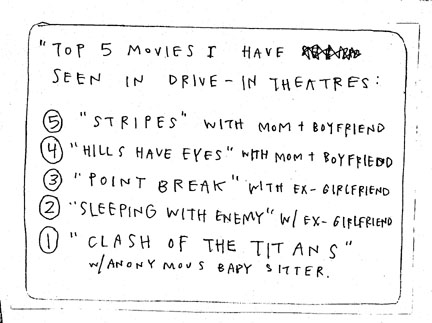 "TOP 5 MOVIES I HAVE
SEEN IN DRIVE-IN THEATRES:
⑤ "STRIPES" WITH MOM + BOYFRIEND
④ "HILLS HAVE EYES" WITH MOM + BOYFRIEND
③ "POINT BREAK" WITH EX-GIRLFRIEND
② "SLEEPING WITH ENEMY" W/ EX-GIRLFRIEND
① "CLASH OF THE TITANS"
W/ANONYMOUS BABY SITTER.